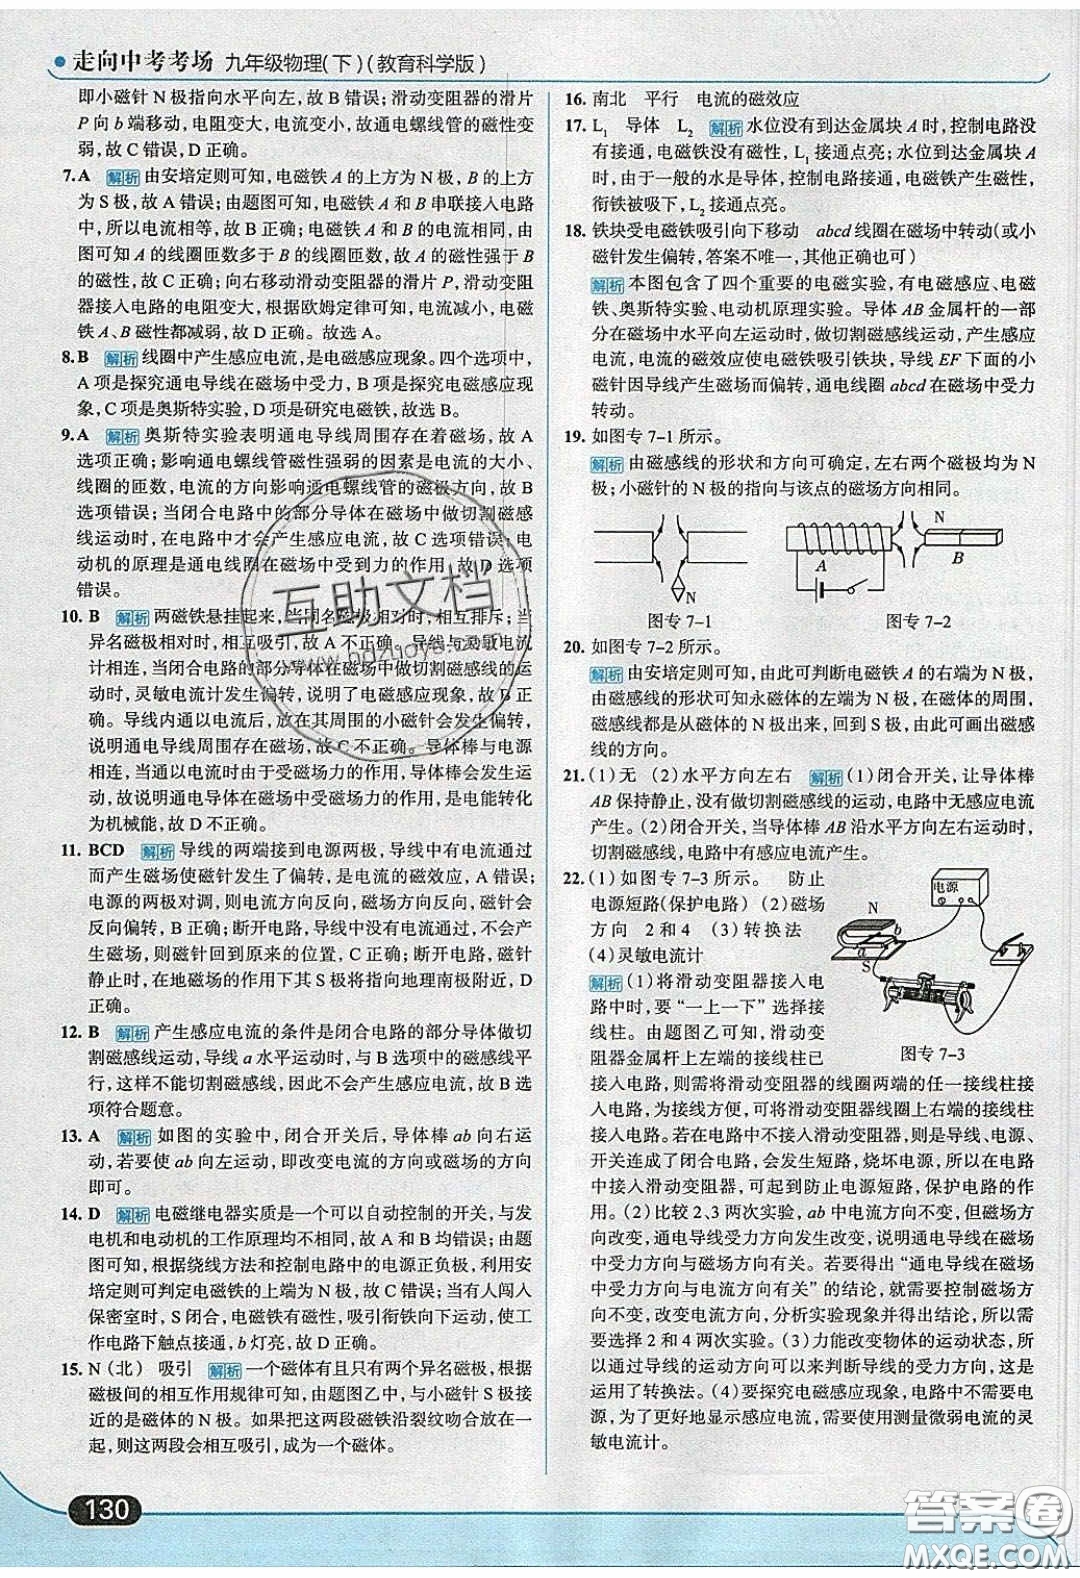 走向中考考场 九年级物理(下)(教育科学版)
即小磁针N极指向水平向左,故B错误;滑动变阻器的滑片
P向b端移动,电阻变大,电流变小,故通电螺线管的磁性变
弱,故C错误,D正确。
7.A 解析 由安培定则可知,电磁铁A的上方为N极,B的上方
为S极,故A错误;由题图可知,电磁铁A和B串联接入电路
中,所以电流相等,故B正确;电磁铁A和B的电流相同,由
图可知A的线圈匝数多于B的线圈匝数,故A的磁性强于B
的磁性,故C正确;向右移动滑动变阻器的滑片P,滑动变阻
器接入电路的电阻变大,根据欧姆定律可知,电流减小,电磁
铁A、B磁性都减弱,故D正确。故选A。
8.B 解析 线圈中产生感应电流,是电磁感应现象。四个选项中,
A项是探究通电导线在磁场中受力,B项是探究电磁感应现
象,C项是奥斯特实验,D项是研究电磁铁,故选B。
9.A 解析 奥斯特实验表明通电导线周围存在着磁场,故A
选项正确;影响通电螺线管磁性强弱的因素是电流的大小、
线圈的匝数,电流的方向影响通电螺线管的磁极方向,故B
选项错误;当闭合电路中的部分导体在磁场中做切割磁感
线运动时,在电路中才会产生感应电流,故C选项错误;电
动机的原理是通电线圈在磁场中受到力的作用,故D选项
错误。
10.B 解析 两磁铁悬挂起来,当同名磁极相对时,相互排斥;当
异名磁极相对时,相互吸引,故A不正确。导线与灵敏电流
计相连,当闭合电路的部分导体在磁场中做切割磁感线的运
动时,灵敏电流计发生偏转,说明了电磁感应现象,故B正
确。导线内通以电流后,放在其周围的小磁针会发生偏转,
说明通电导线周围存在磁场,故C不正确。导体棒与电源
相连,当通以电流时由于受磁场力的作用,导体棒会发生运
动,故说明通电导体在磁场中受磁场力的作用,是电能转化
为机械能,故D不正确。
11.BCD 解析 导线的两端接到电源两极,导线中有电流通过
而产生磁场使磁针发生了偏转,是电流的磁效应,A错误;
电源的两极对调,则电流方向反向,磁场方向反向,磁针会
反向偏转,B正确;断开电路,导线中没有电流通过,不会产
生磁场,则磁针回到原来的位置,C正确;断开电路,磁针
静止时,在地磁场的作用下其S极将指向地理南极附近,D
正确。
12.B 解析 产生感应电流的条件是闭合电路的部分导体做切
割磁感线运动,导线a水平运动时,与B选项中的磁感线平
行,这样不能切割磁感线,因此不会产生感应电流,故B选
项符合题意。
13.A 解析 如图的实验中,闭合开关后,导体棒ab向右运
动,若要使ab向左运动,即改变电流的方向或磁场的方向
即可。
14.D 解析 电磁继电器实质是一个可以自动控制的开关,与发
电机和电动机的工作原理均不相同,故A和B均错误;由题
图可知,根据绕线方法和控制电路中的电源正负极,利用安
培定则可判定电磁铁的上端为N极,故C错误;当有人闯入
保密室时,S闭合,电磁铁有磁性,吸引衔铁向下运动,使工
作电路下触点接通,b灯亮,故D正确。
15.N(北) 吸引 解析 一个磁体有且只有两个异名磁极,根据
磁极间的相互作用规律可知,故图乙中,与小磁针S极接
近的是磁体的N极。如果把这两段磁铁沿裂纹吻合放在一
起,则这两段会相互吸引,成为一个磁体。
16.南北 平行 电流的磁效应
17.L1 导体 L2 解析 水位没有到达金属块A时,控制电路没
有接通,电磁铁没有磁性,L1接通点亮;水位到达金属块A
时,由于一般的水是导体,控制电路接通,电磁铁产生磁性,
衔铁被吸下,L2接通点亮。
18.铁块受电磁铁吸引向下移动 abcd线圈在磁场中转动(或小
磁针发生偏转,答案不唯一,其他正确也可)
解析 本图包含了四个重要的电磁实验,有电磁感应、电磁
铁、奥斯特实验、电动机原理实验。导体AB金属杆的一部
分在磁场中水平向左运动时,做切割磁感线运动,产生感应
电流,电流的磁效应使电磁铁吸引铁块,导线EF下面的小
磁针因导线产生磁场而偏转,通电线圈abcd在磁场中受力
转动。
19.如图专7-1所示。
解析 由磁感线的形状和方向可确定,左右两个磁极均为N
极;小磁针的N极的指向与该点的磁场方向相同。
N
A
N
B
图专7-1 图专7-2
20.如图专7-2所示。
解析 由安培定则可知,由此可判断电磁铁A的右端为N极,
由磁感线的形状可知永磁体的左端为N极,在磁体的周围,
磁感线都是从磁体的N极出来,回到S极,由此可画出磁感
线的方向。
21.(1)无 (2)水平方向左右 解析 (1)闭合开关,让导体棒
AB保持静止,没有做切割磁感线的运动,电路中无感应电流
产生。(2)闭合开关,当导体棒AB沿水平方向左右运动时,
切割磁感线,电路中有感应电流产生。
22.(1)如图专7-3所示。 防止
电源短路(保护电路) (2)磁场
方向 2和4 (3)转换法
(4)灵敏电流计
电源
N
a
b
S
图专7-3
解析 (1)将滑动变阻器接入电
路中时,要“一上一下”选择接
线柱。由题图乙可知,滑动变
阻器金属杆上左端的接线柱已
接入电路,则需将滑动变阻器的线圈两端的任一接线柱接
入电路,为接线方便,可将滑动变阻器线圈上右端的接线柱
接入电路。若在电路中不接入滑动变阻器,则是导线、电源、
开关连成了闭合电路,会发生短路,烧坏电源,所以在电路中
接入滑动变阻器,可起到防止电源短路,保护电路的作
用。(2)比较2、3两次实验,ab中电流方向不变,但磁场
方向改变,通电导线受力方向发生改变,说明通电导线在磁
场中受力方向与磁场方向有关。若要得出“通电导线在磁场
中受力方向与电流方向有关”的结论,就需要控制磁场方
向不变,改变电流方向,分析实验现象并得出结论,所以需
要选择2和4两次实验。(3)力能改变物体的运动状态,所
以通过导线的运动方向可以来判断导线的受力方向,这是
运用了转换法。(4)要探究电磁感应现象,电路中不需要电
源,为了更好地显示感应电流,需要使用测量微弱电流的灵
敏电流计。
130
互助文档
www.hdzuoye.com
答案圈
MXQE.COM